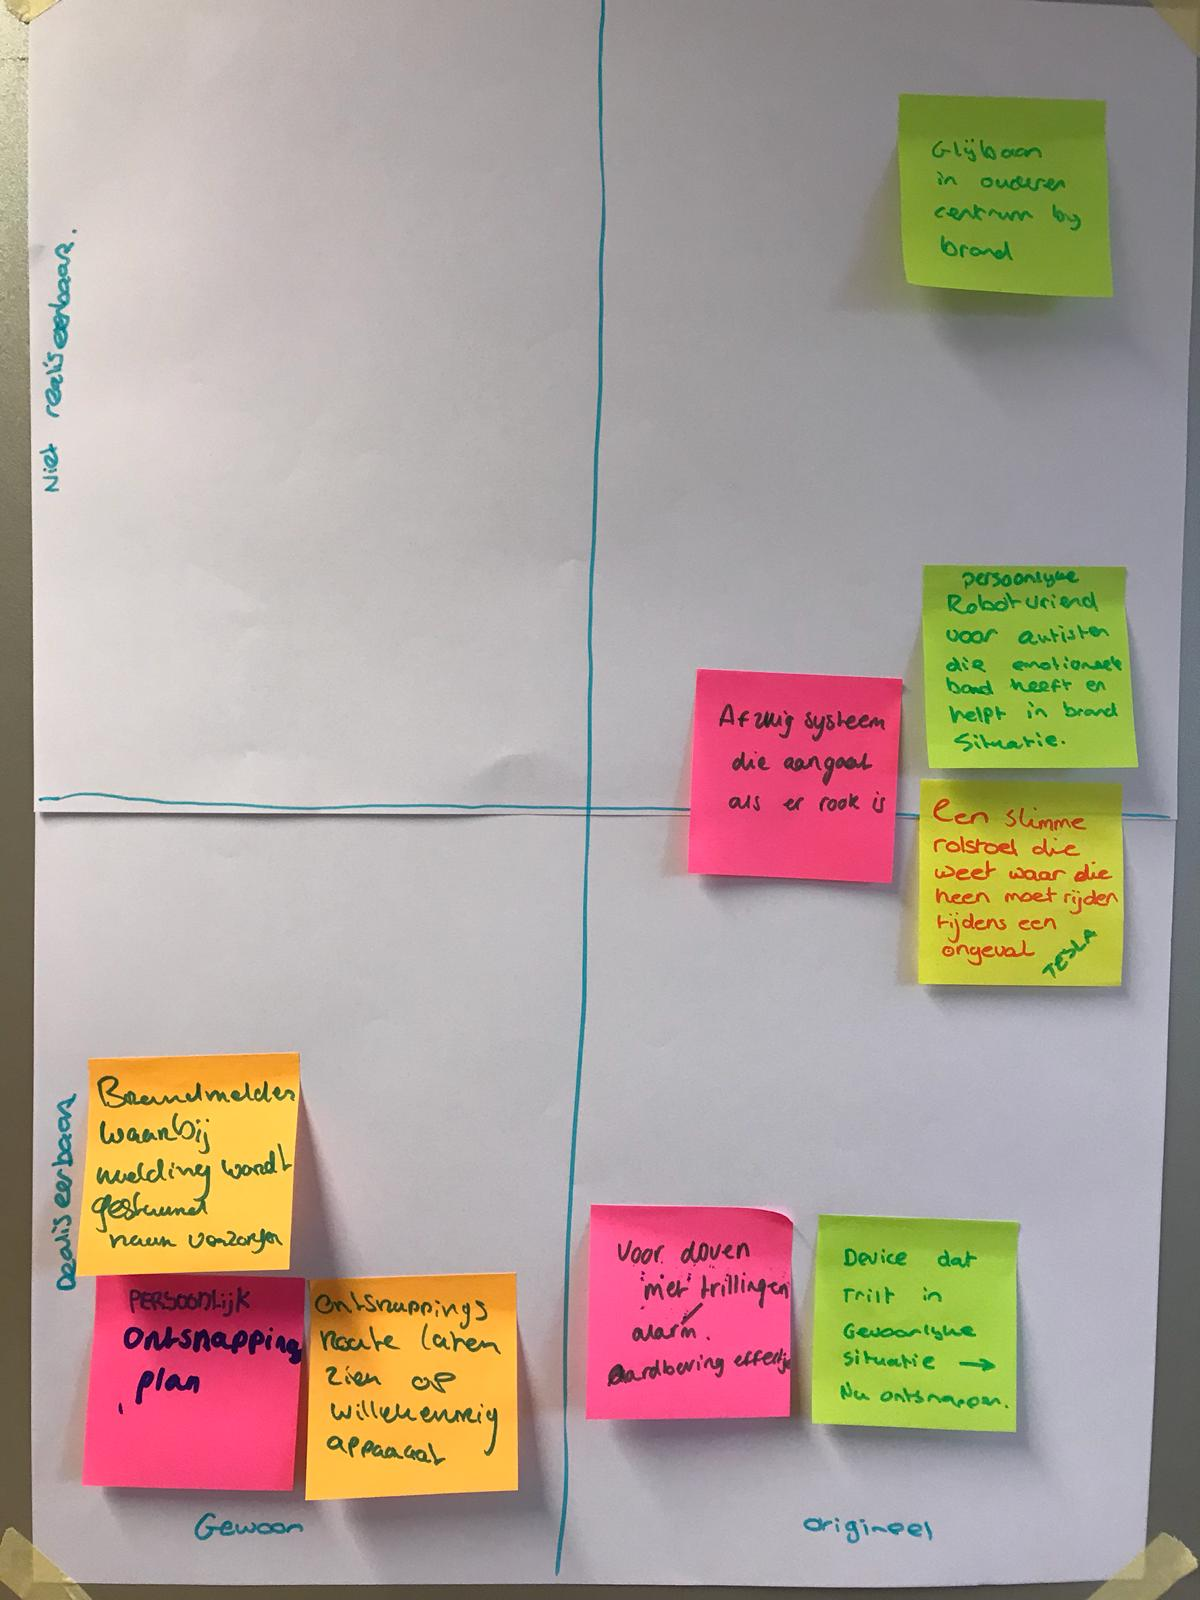 Glijbaan
in ouderen
centrum by
brand
Niet realiseerbaar.
persoonlyke
Robotvriend
voor autisten
die emotioneele
band heeft en
helpt in brand
Situatie.
Afzuig systeem
die aangaat
als er rook is
Een slimme
rolstoel die
weet waar die
heen moet rijden
tijdens een
ongeval
TESLA
Realiseerbaar
Brandmelder
waarbij
melding wordt
gestuurd
naar verzorger
PERSOONLIJK
Ontsnapping
plan
Ontsnappings
Route laten
zien op
willekeurig
apparaat
Voor doven
met trillingen
alarm.
Aardbeving effectje
Device dat
Trilt in
Gevaarlyke
Situatie →
Nu ontsnappen.
Gewoon
origineel